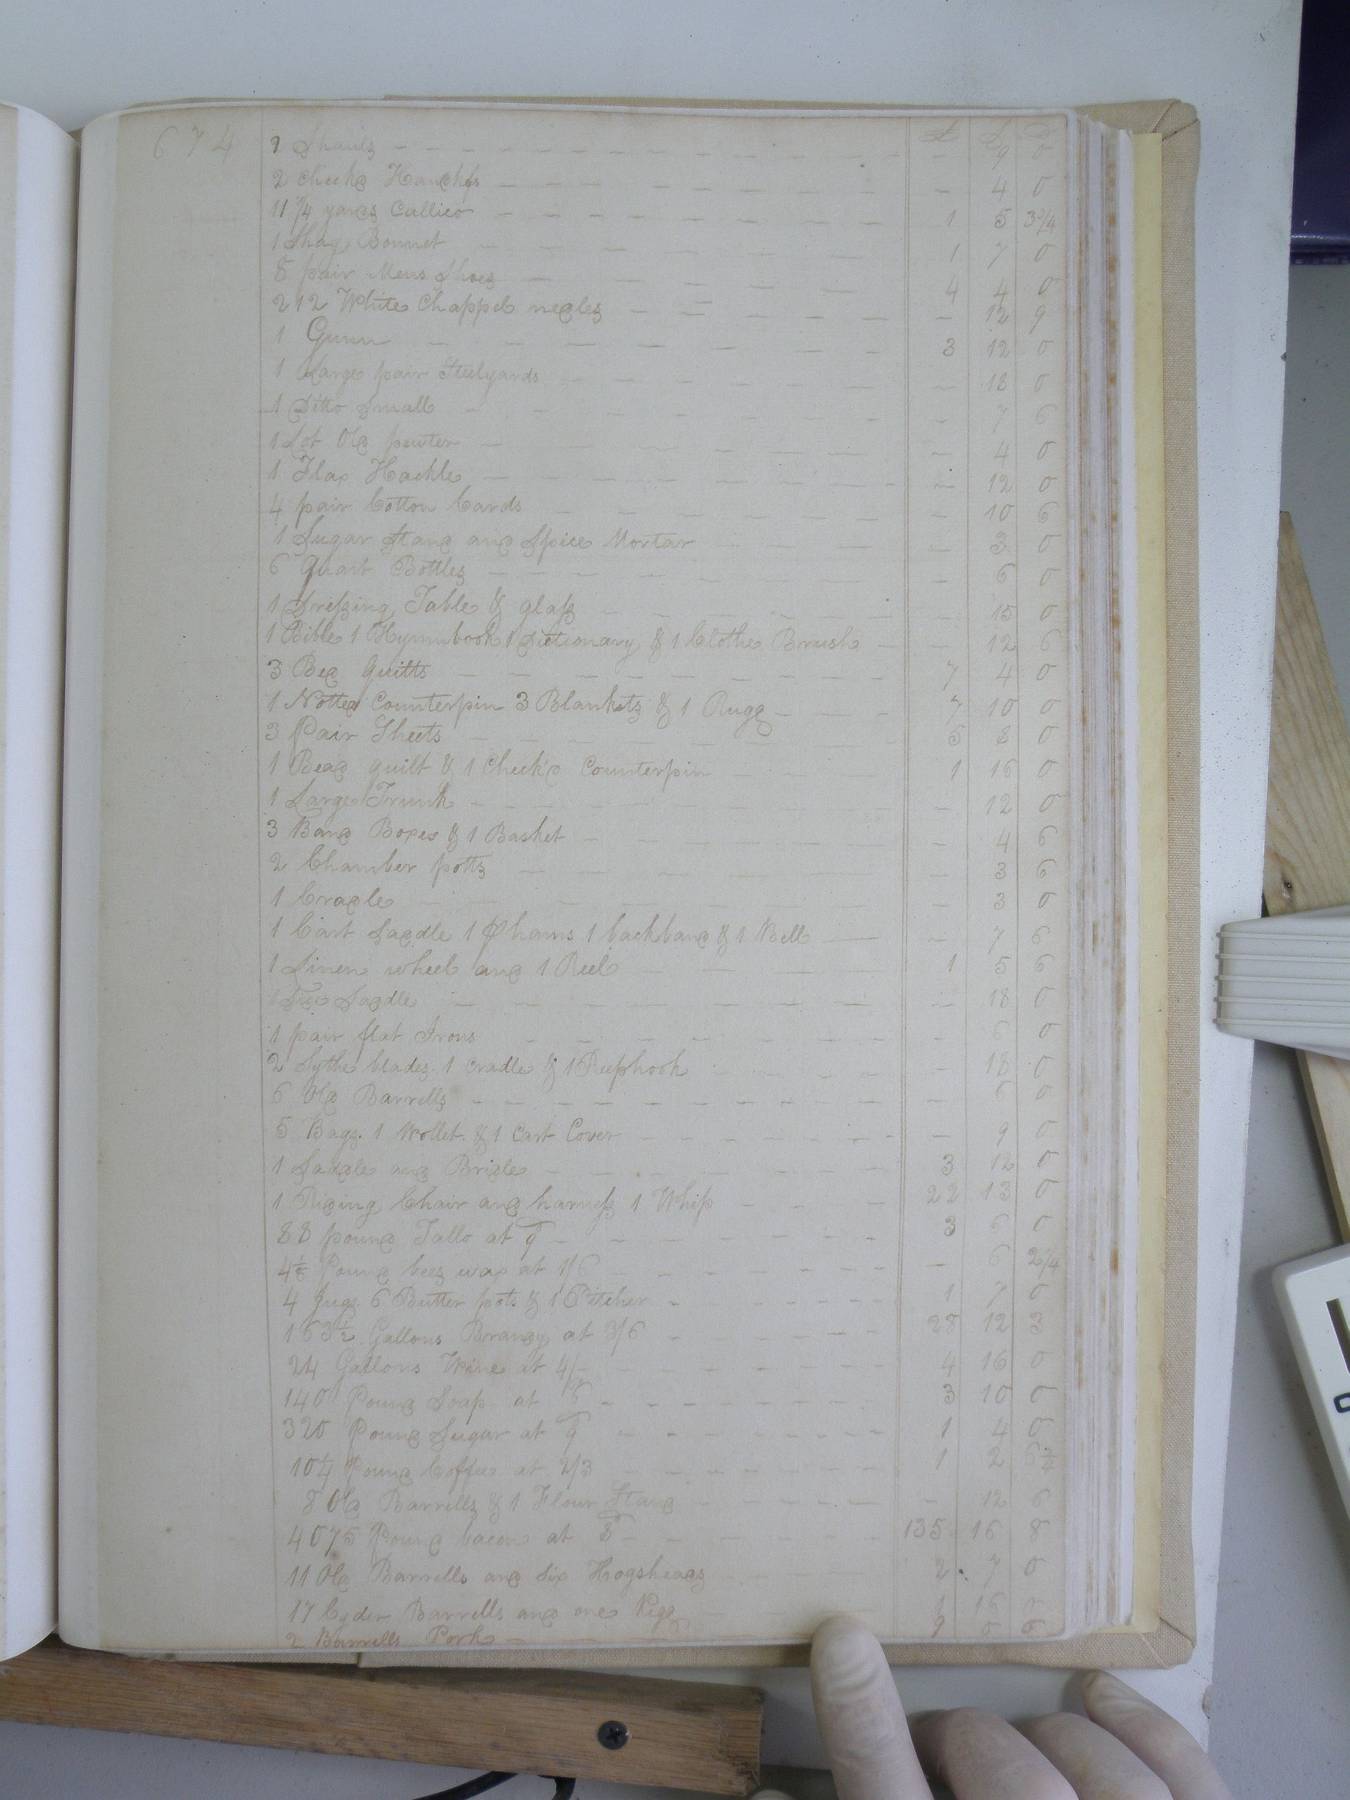 674
£ S D
2 Shauls - 9 0
2 check'd Handkfs - 4 0
11 3/4 yards Callico 1 5 3 3/4
1 Shag Bonnet 1 7 0
8 pair Mens Shoes 4 4 0
212 White Chappel nedles - 12 9
1 Gunn 3 12 0
1 Large pair Steelyards - 18 0
1 Ditto Small - 7 6
1 Lot Old pewter - 4 0
1 Flax Hackle - 12 0
4 pair Cotton Cards - 10 6
1 Sugar Stand and Spice Mortar - 3 0
6 Quart Bottles - 6 0
1 Dressing Table & glass - 15 0
1 Bible 1 Hymnbook 1 Dictionary & 1 Cloths Brush - 12 6
3 Bed Quilts 7 4 0
1 Notted Counterpin 3 Blankets & 1 Rugg 7 10 0
3 Pair Sheets 5 8 0
1 Bead quilt & 1 Check'd Counterpin 1 16 0
1 Large Trunk - 12 0
3 Band Boxes & 1 Basket - 4 6
2 Chamber potts - 3 6
1 Cradle - 3 0
1 Cart Saddle 1 phams 1 backband & 1 Bell - 7 6
1 Linen wheel and 1 Reel 1 5 6
1 Saddle - 18 0
1 pair flat Irons - 6 0
2 Sythe blades 1 Cradle & 1 Reephook - 18 0
6 Old Barrells - 6 0
5 Bags 1 Wollet & 1 Cart Cover - 9 0
1 Saddle and Bridle 3 12 0
1 Riding Chair and harness 1 Whip 22 13 0
88 pound Tallo at 9 3 6 0
4 1/8 Pound bees wax at 1/6 - 6 2 1/4
4 Jugs 6 Butter pots & 1 Pitcher 1 7 0
163 1/2 Gallons Brandy at 3/6 28 12 3
24 Gallons Wine at 4/- 4 16 0
140 Pound Soap at /6 3 10 0
Pound Sugar at 9 1 4 0
10 1/4 Pound Coffee at 2/3 1 2 6
8 Old Barrells & 1 Flour Stand - 12 6
4075 Pound bacon at 8 135 16 8
11 Old Barrells and six Hogsheads 2 7 0
17 Cyder Barrells and one Pigg 1 16
2 Barrells Pork 9 0 0